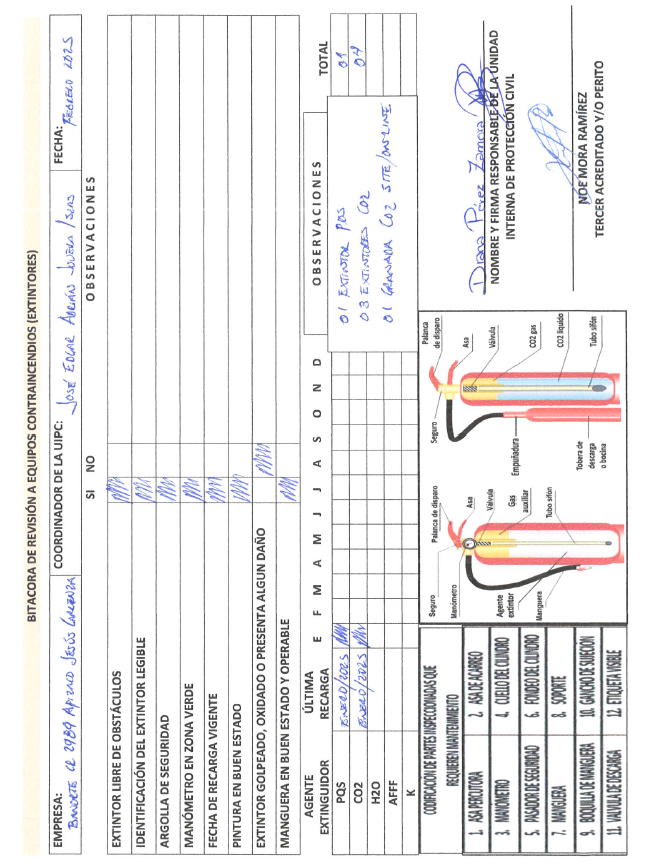 BITACORA DE REVISIÓN A EQUIPOS CONTRAINCENDIOS (EXTINTORES)
EMPRESA: BANORTE CR 2989 APIZACO JESÚS CARRANZA
COORDINADOR DE LA UIPC: JOSÉ EDGAR ADRIÁN
FECHA: FEBRERO 2025
SI NO OBSERVACIONES
EXTINTOR LIBRE DE OBSTÁCULOS
IDENTIFICACIÓN DEL EXTINTOR LEGIBLE
ARGOLLA DE SEGURIDAD
MANÓMETRO EN ZONA VERDE
FECHA DE RECARGA VIGENTE
PINTURA EN BUEN ESTADO
EXTINTOR GOLPEADO, OXIDADO O PRESENTA ALGUN DAÑO
MANGUERA EN BUEN ESTADO Y OPERABLE
AGENTE EXTINGUIDOR ÚLTIMA RECARGA E F M A M J J A S O N D OBSERVACIONES TOTAL
PQS ENERO/2025 01 EXTINTOR PQS 01
CO2 ENERO/2025 03 EXTINTORES CO2 04
H2O 01 GRANADA CO2 SITE/ON-LINE
AFFF
K
CODIFICACION DE PARTES INSPECCIONADAS QUE
REQUIEREN MANTENIMIENTO
1. ASA PERCUTORA 2. ASA DE ACARREO
3. MANOMETRO 4. CUELLO DEL CILINDRO
5. PASADOR DE SEGURIDAD 6. FONDEO DEL CILINDRO
7. MANGUERA 8. SOPORTE
9. BOQUILLA DE MANGUERA 10. GANCHO DE SUJECION
11. VALVULA DE DESCARGA 12. ETIQUETA VISIBLE
Seguro
Palanca de disparo
Manómetro
Asa
Válvula
Agente
extintor
Gas
auxiliar
Manguera
Tubo sifón
Seguro
Palanca
de disparo
Asa
Válvula
Empuñadura
CO2 gas
CO2 líquido
Tobera de
descarga
o bocina
Tubo sifón
Diana Pérez Zamora
NOMBRE Y FIRMA RESPONSABLE DE LA UNIDAD
INTERNA DE PROTECCIÓN CIVIL
NOE MORA RAMÍREZ
TERCER ACREDITADO Y/O PERITO